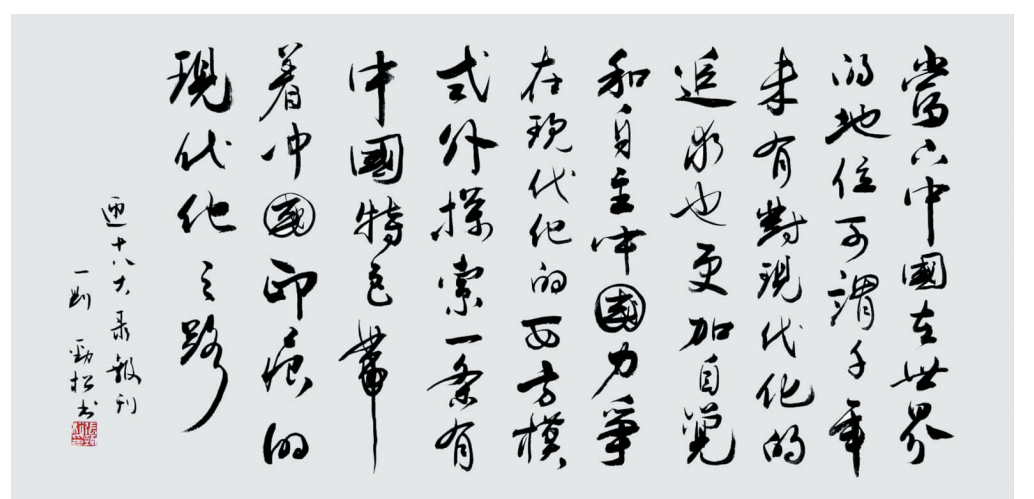 當下中國在世界
的地位可謂千年
未有對現代化的
追求也更加自覺
和自主中國力爭
在現代化的西方模
式外探索一条有
中國特色帶
着中國印痕的
現代化之路
迎十八大录報刊
一則 勁松书